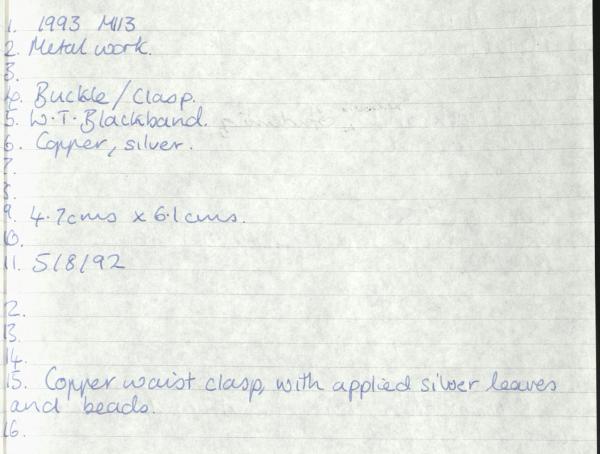 1. 1993 M113
2. Metal work.
3.
4. Buckle/Clasp.
5. W.T. Blackband.
6. Copper, silver.
7.
8.
9. 4.7cms x 6.1cms.
10.
11. 5/8/92
2.
13.
14.
15. Copper waist clasp, with applied silver leaves
and beads.
16.